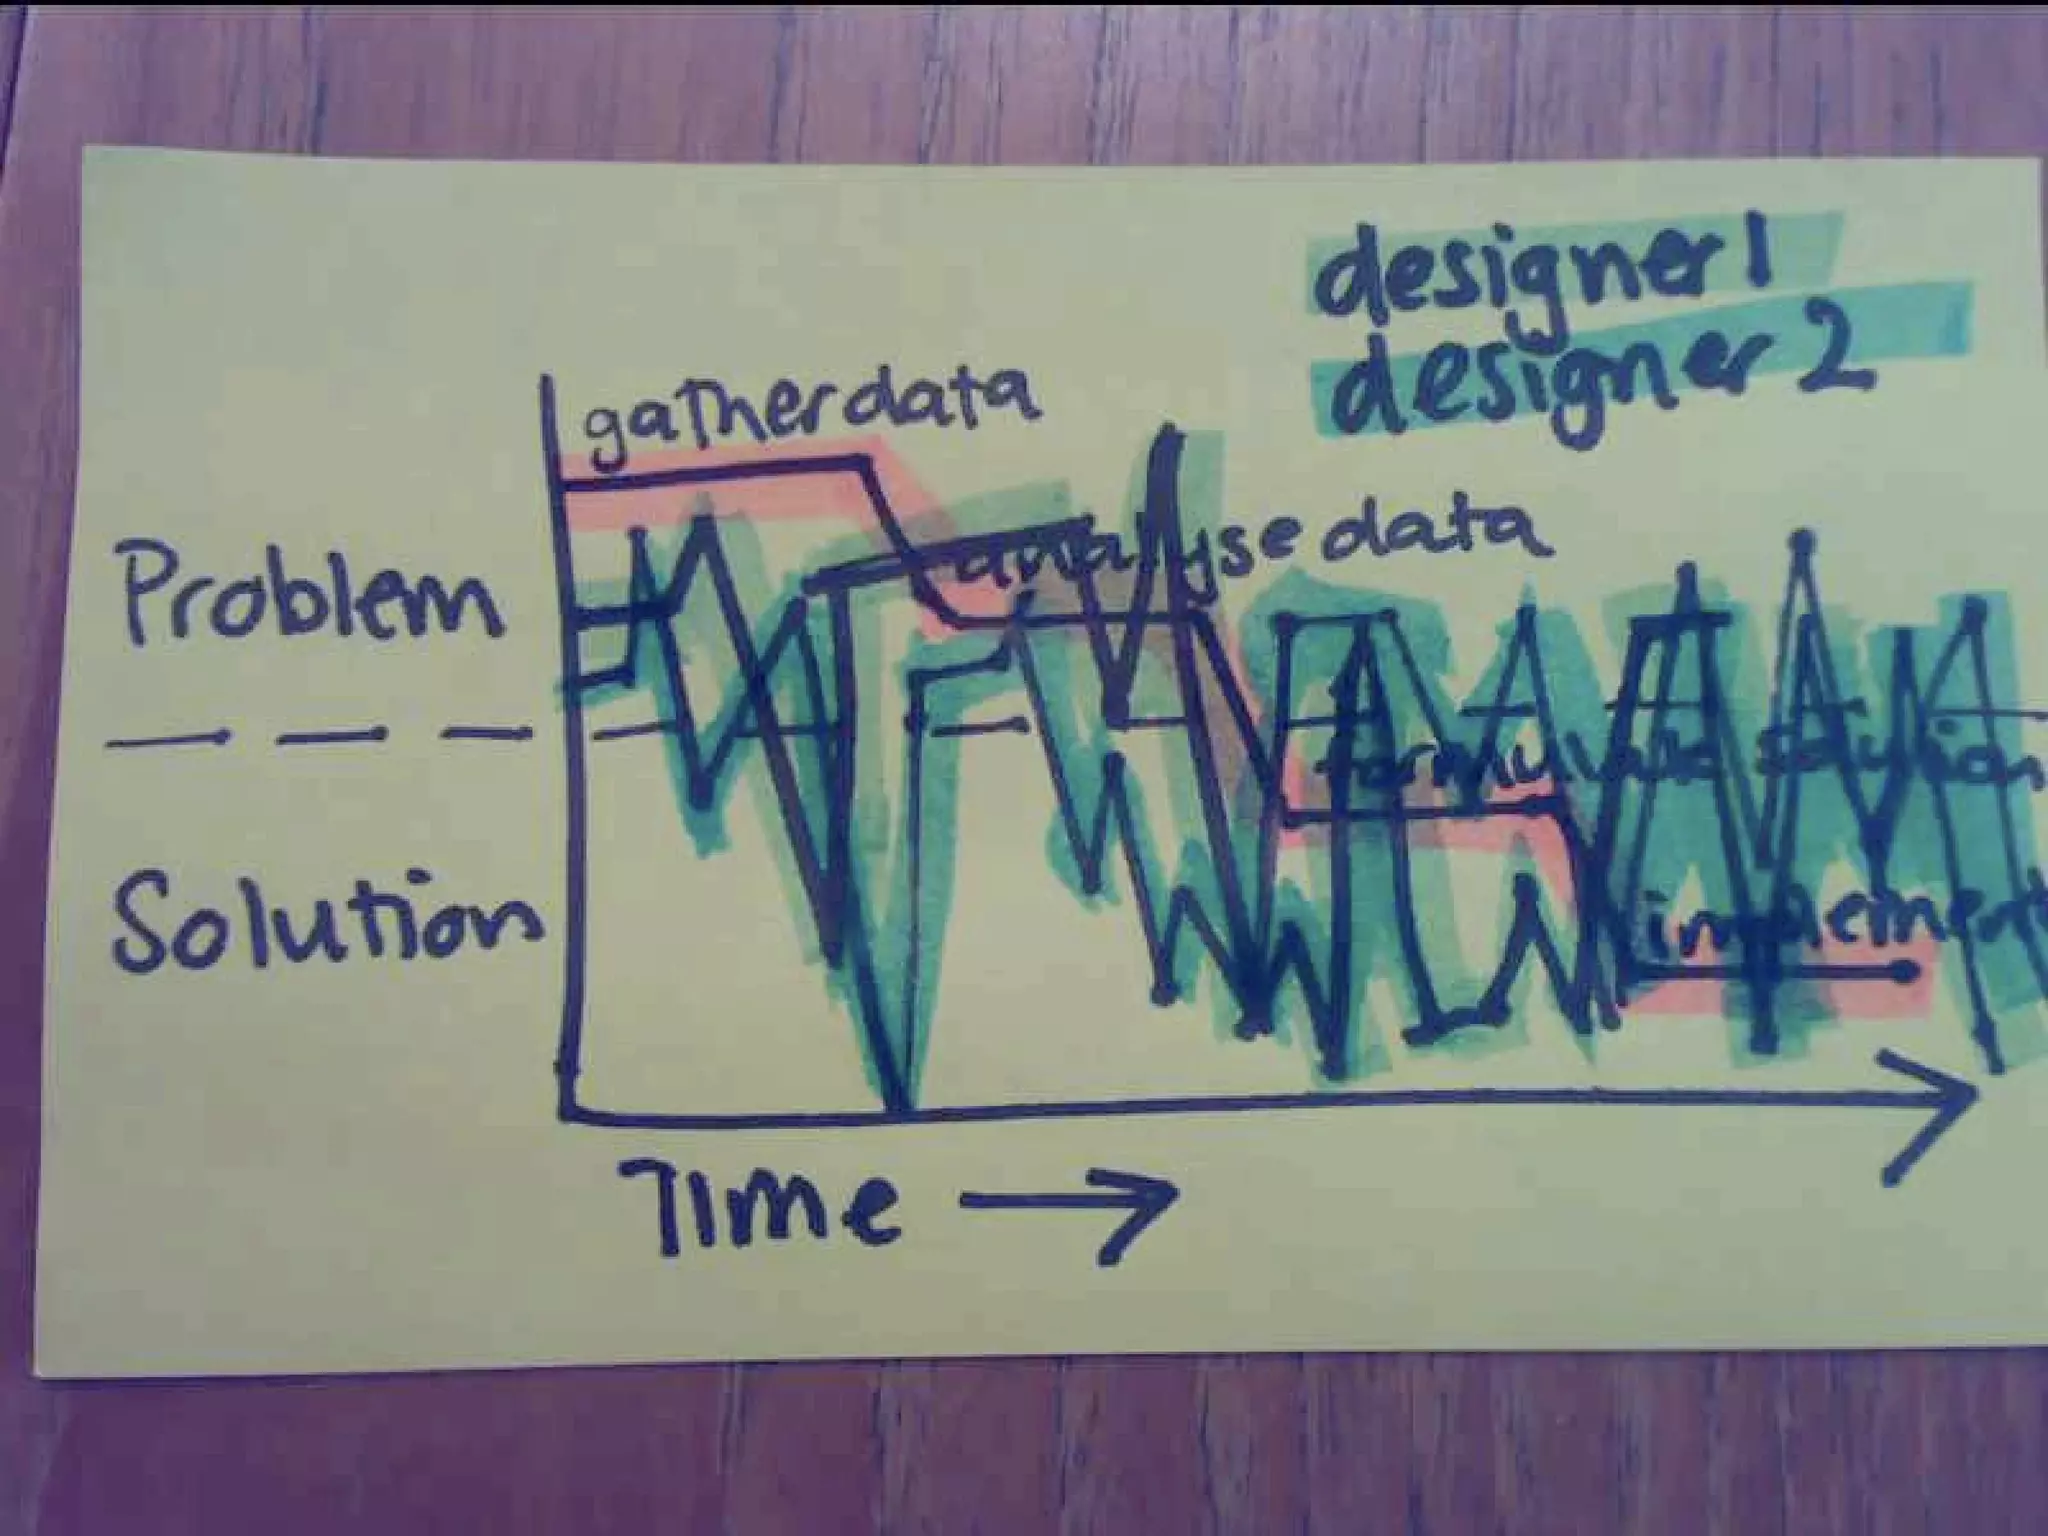 designer 1
designer 2
gather data
analyse data
Problem
formulate solution
Solution
implement
Time